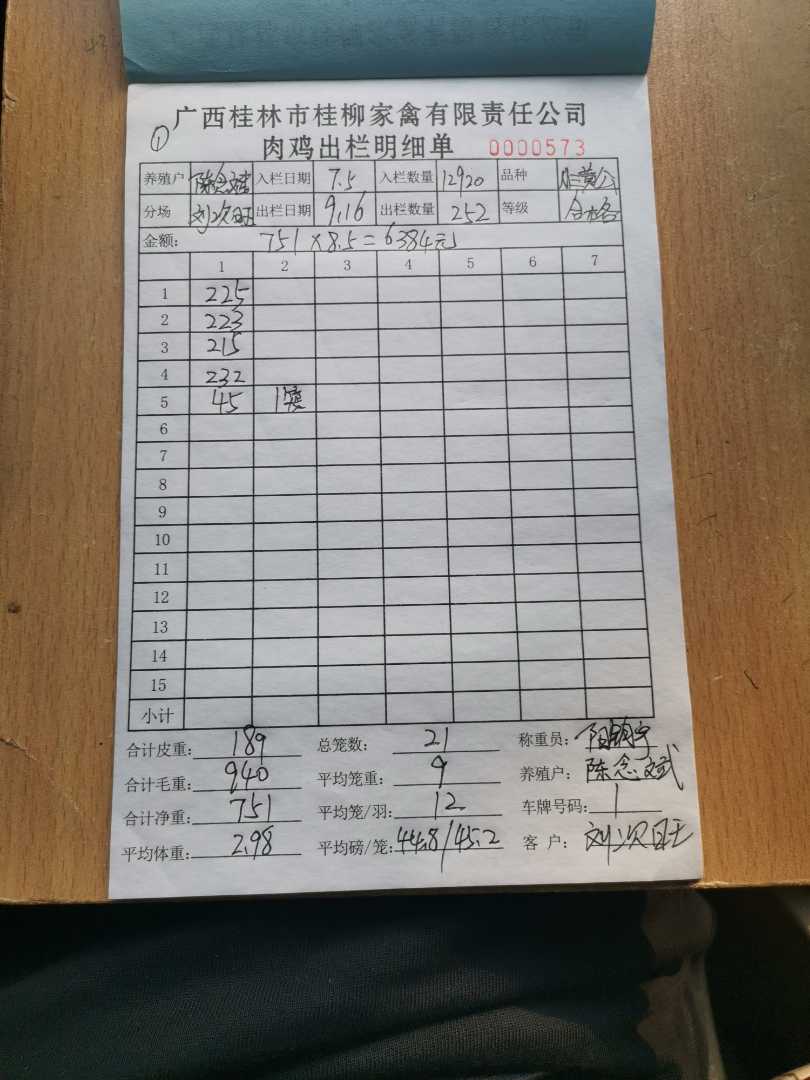 广西桂林市桂柳家禽有限责任公司
① 肉鸡出栏明细单 0000573
养殖户 陈念斌 入栏日期 7.5 入栏数量 12920 品种 黄公
分场 刘次旺 出栏日期 9.16 出栏数量 252 等级 合格
金额: 751×8.5=6384元
1 2 3 4 5 6 7
1 225
2 223
3 215
4 232
5 45 1隻
6
7
8
9
10
11
12
13
14
15
小计
合计皮重: 189 总笼数: 21 称重员:
合计毛重: 940 平均笼重: 9 养殖户: 陈念斌
合计净重: 751 平均笼/羽: 12 车牌号码: 1
平均体重: 2.98 平均磅/笼: 44.8/45.2 客户: 刘次旺